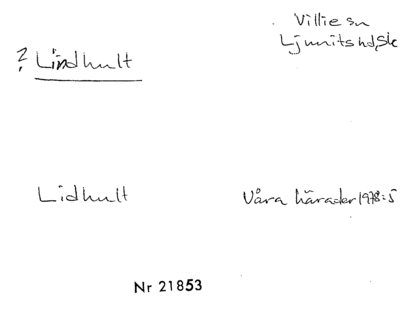 Villie sn
Ljunits hd, Sk
? Lindhult
Lidhult Våra härader 1978:5
Nr 21853